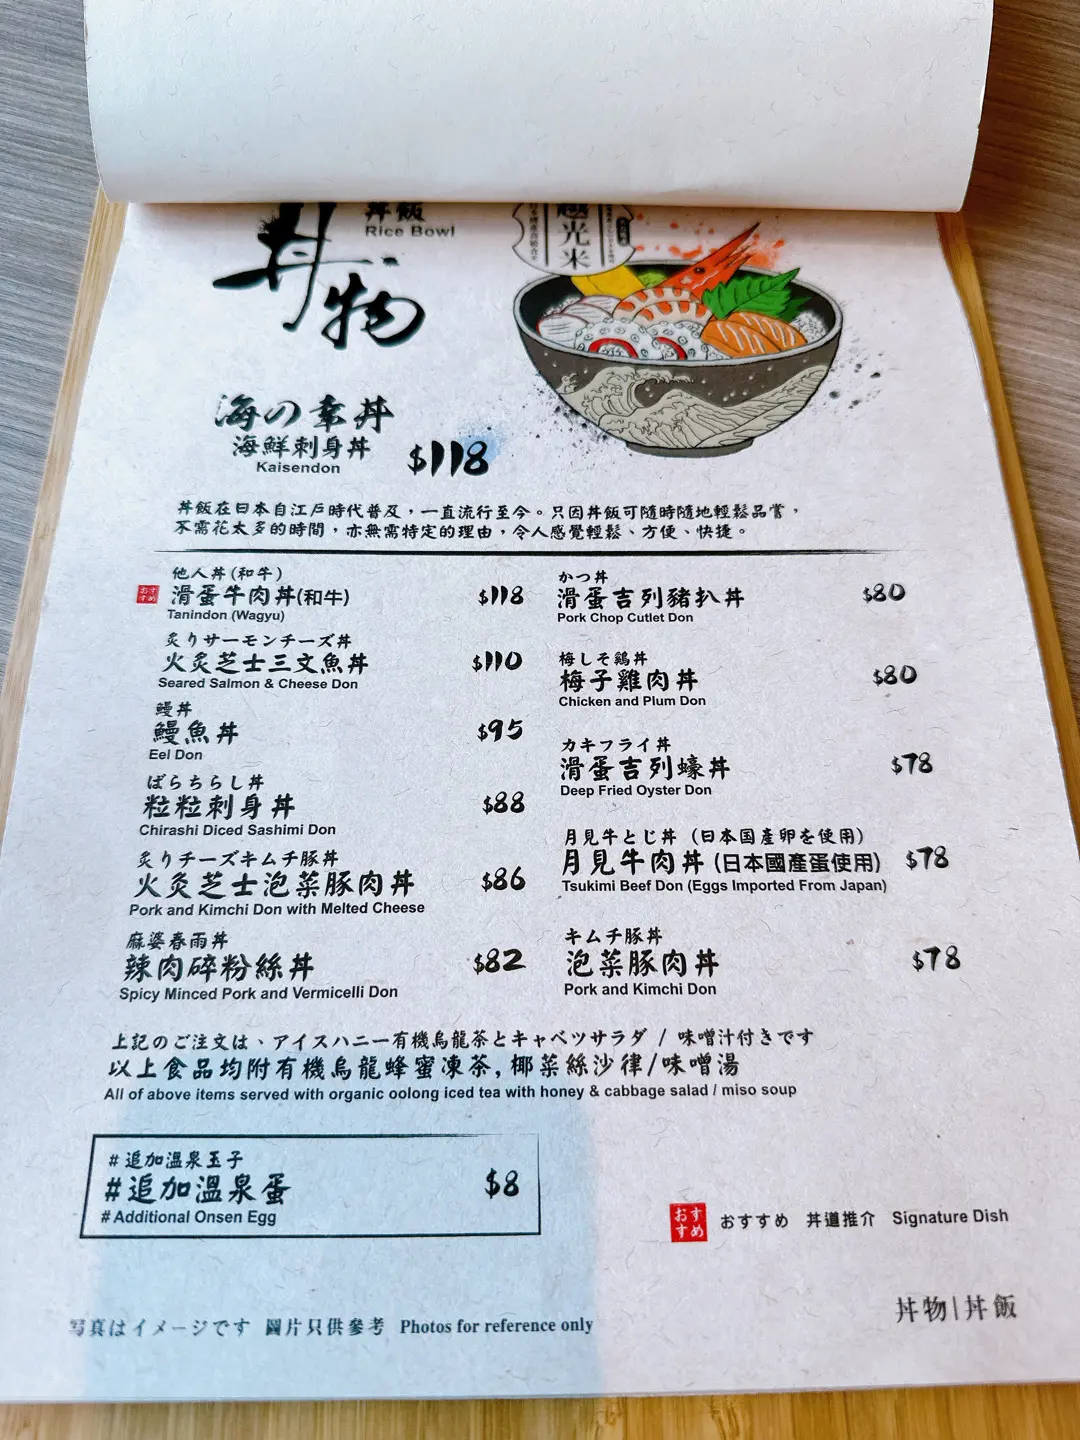 丼飯
Rice Bowl
丼物
越光米
海の幸丼
海鮮刺身丼
Kaisendon
$118
丼飯在日本自江戶時代普及，一直流行至今。只因丼飯可隨時隨地輕鬆品嘗，
不需花太多的時間，亦無需特定的理由，令人感覺輕鬆、方便、快捷。
おすすめ
他人丼(和牛)
滑蛋牛肉丼(和牛) $118
Tanindon (Wagyu)
炙りサーモンチーズ丼
火炙芝士三文魚丼 $110
Seared Salmon & Cheese Don
鰻丼
鰻魚丼 $95
Eel Don
ばらちらし丼
粒粒刺身丼 $88
Chirashi Diced Sashimi Don
炙りチーズキムチ豚丼
火炙芝士泡菜豚肉丼 $86
Pork and Kimchi Don with Melted Cheese
麻婆春雨丼
辣肉碎粉絲丼 $82
Spicy Minced Pork and Vermicelli Don
かつ丼
滑蛋吉列豬扒丼 $80
Pork Chop Cutlet Don
梅しそ鶏丼
梅子雞肉丼 $80
Chicken and Plum Don
カキフライ丼
滑蛋吉列蠔丼 $78
Deep Fried Oyster Don
月見牛とじ丼 (日本国産卵を使用)
月見牛肉丼 (日本國產蛋使用) $78
Tsukimi Beef Don (Eggs Imported From Japan)
キムチ豚丼
泡菜豚肉丼 $78
Pork and Kimchi Don
上記のご注文は、アイスハニー有機烏龍茶とキャベツサラダ / 味噌汁付きです
以上食品均附有機烏龍蜂蜜凍茶, 椰菜絲沙律/味噌湯
All of above items served with organic oolong iced tea with honey & cabbage salad / miso soup
#追加温泉玉子
#追加溫泉蛋 $8
#Additional Onsen Egg
おすすめ おすすめ 丼道推介 Signature Dish
丼物|丼飯
写真はイメージです 圖片只供參考 Photos for reference only